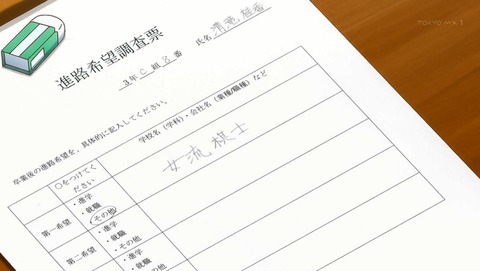 TOKYO MX 1
進路希望調査票
3年C組8番
氏名 清滝桂香
卒業後の進路希望を、具体的に記入してください。
○をつけてください
学校名(学科)・会社名(業種/職種)など
第一希望
・進学
・就職
・その他
女流棋士
第二希望
・進学
・就職
・その他
・進学
・就職